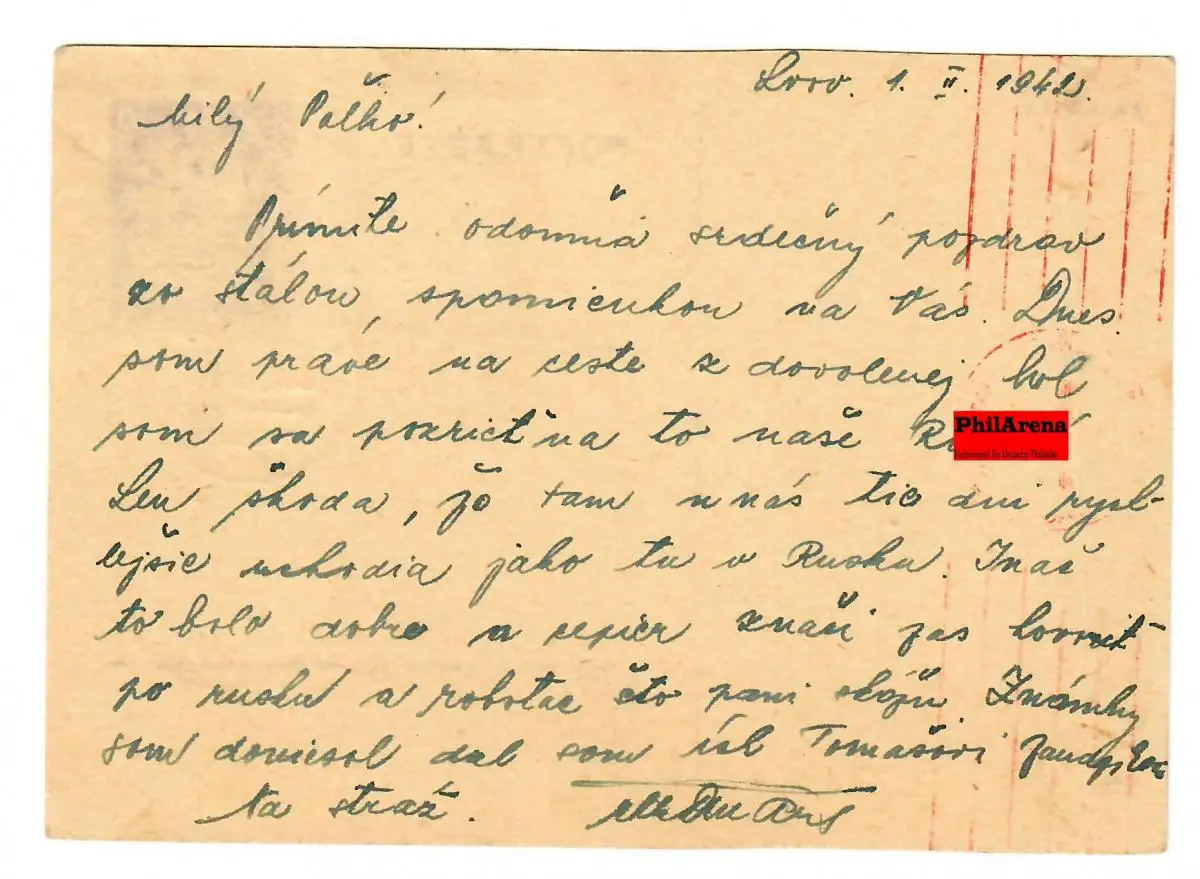 Lvov. 1. II. 1942.
Milý Paľko!
Prímite odomňa srdečný pozdrav
zo stálou spomienkou na Vás. Dnes
som práve na ceste z dovolenej bol
som sa pozrieť na to naše
PhilArena
Len škoda, že tam u nás tie dni rych-
lejšie uchodia jako tu v Rusku. Ináč
to bolo dobre a zas hovoriť
po rusku a robotae što pani skážu Známky
som doniesol dal som ich Tomašovi
Na stráž.